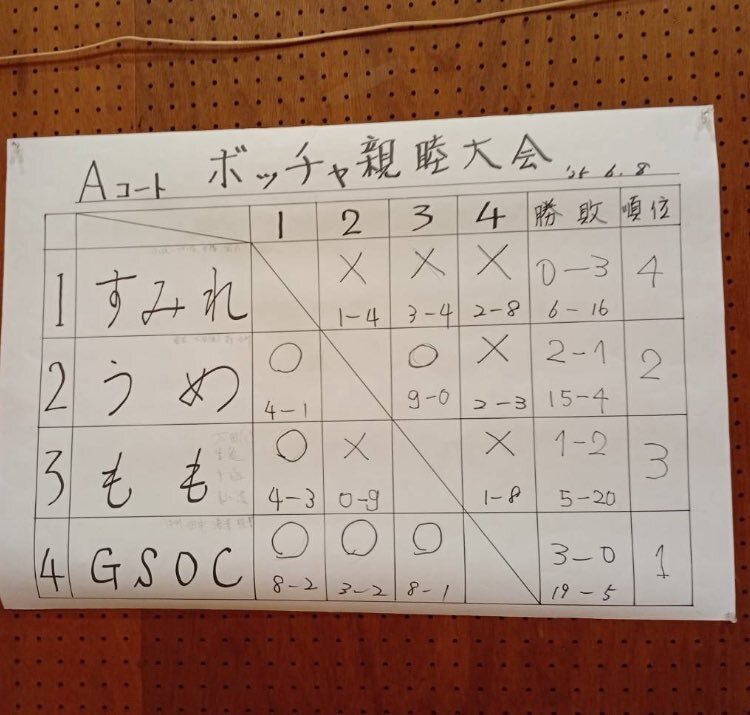 Aコート ボッチャ親睦大会 '25 6.8
1 2 3 4 勝敗 順位
1 すみれ × × × 0-3 4
1-4 3-4 2-8 6-16
2 うめ ○ ○ × 2-1 2
4-1 9-0 2-3 15-4
3 もも ○ × × 1-2 3
4-3 0-9 1-8 5-20
4 GSOC ○ ○ ○ 3-0 1
8-2 3-2 8-1 19-5